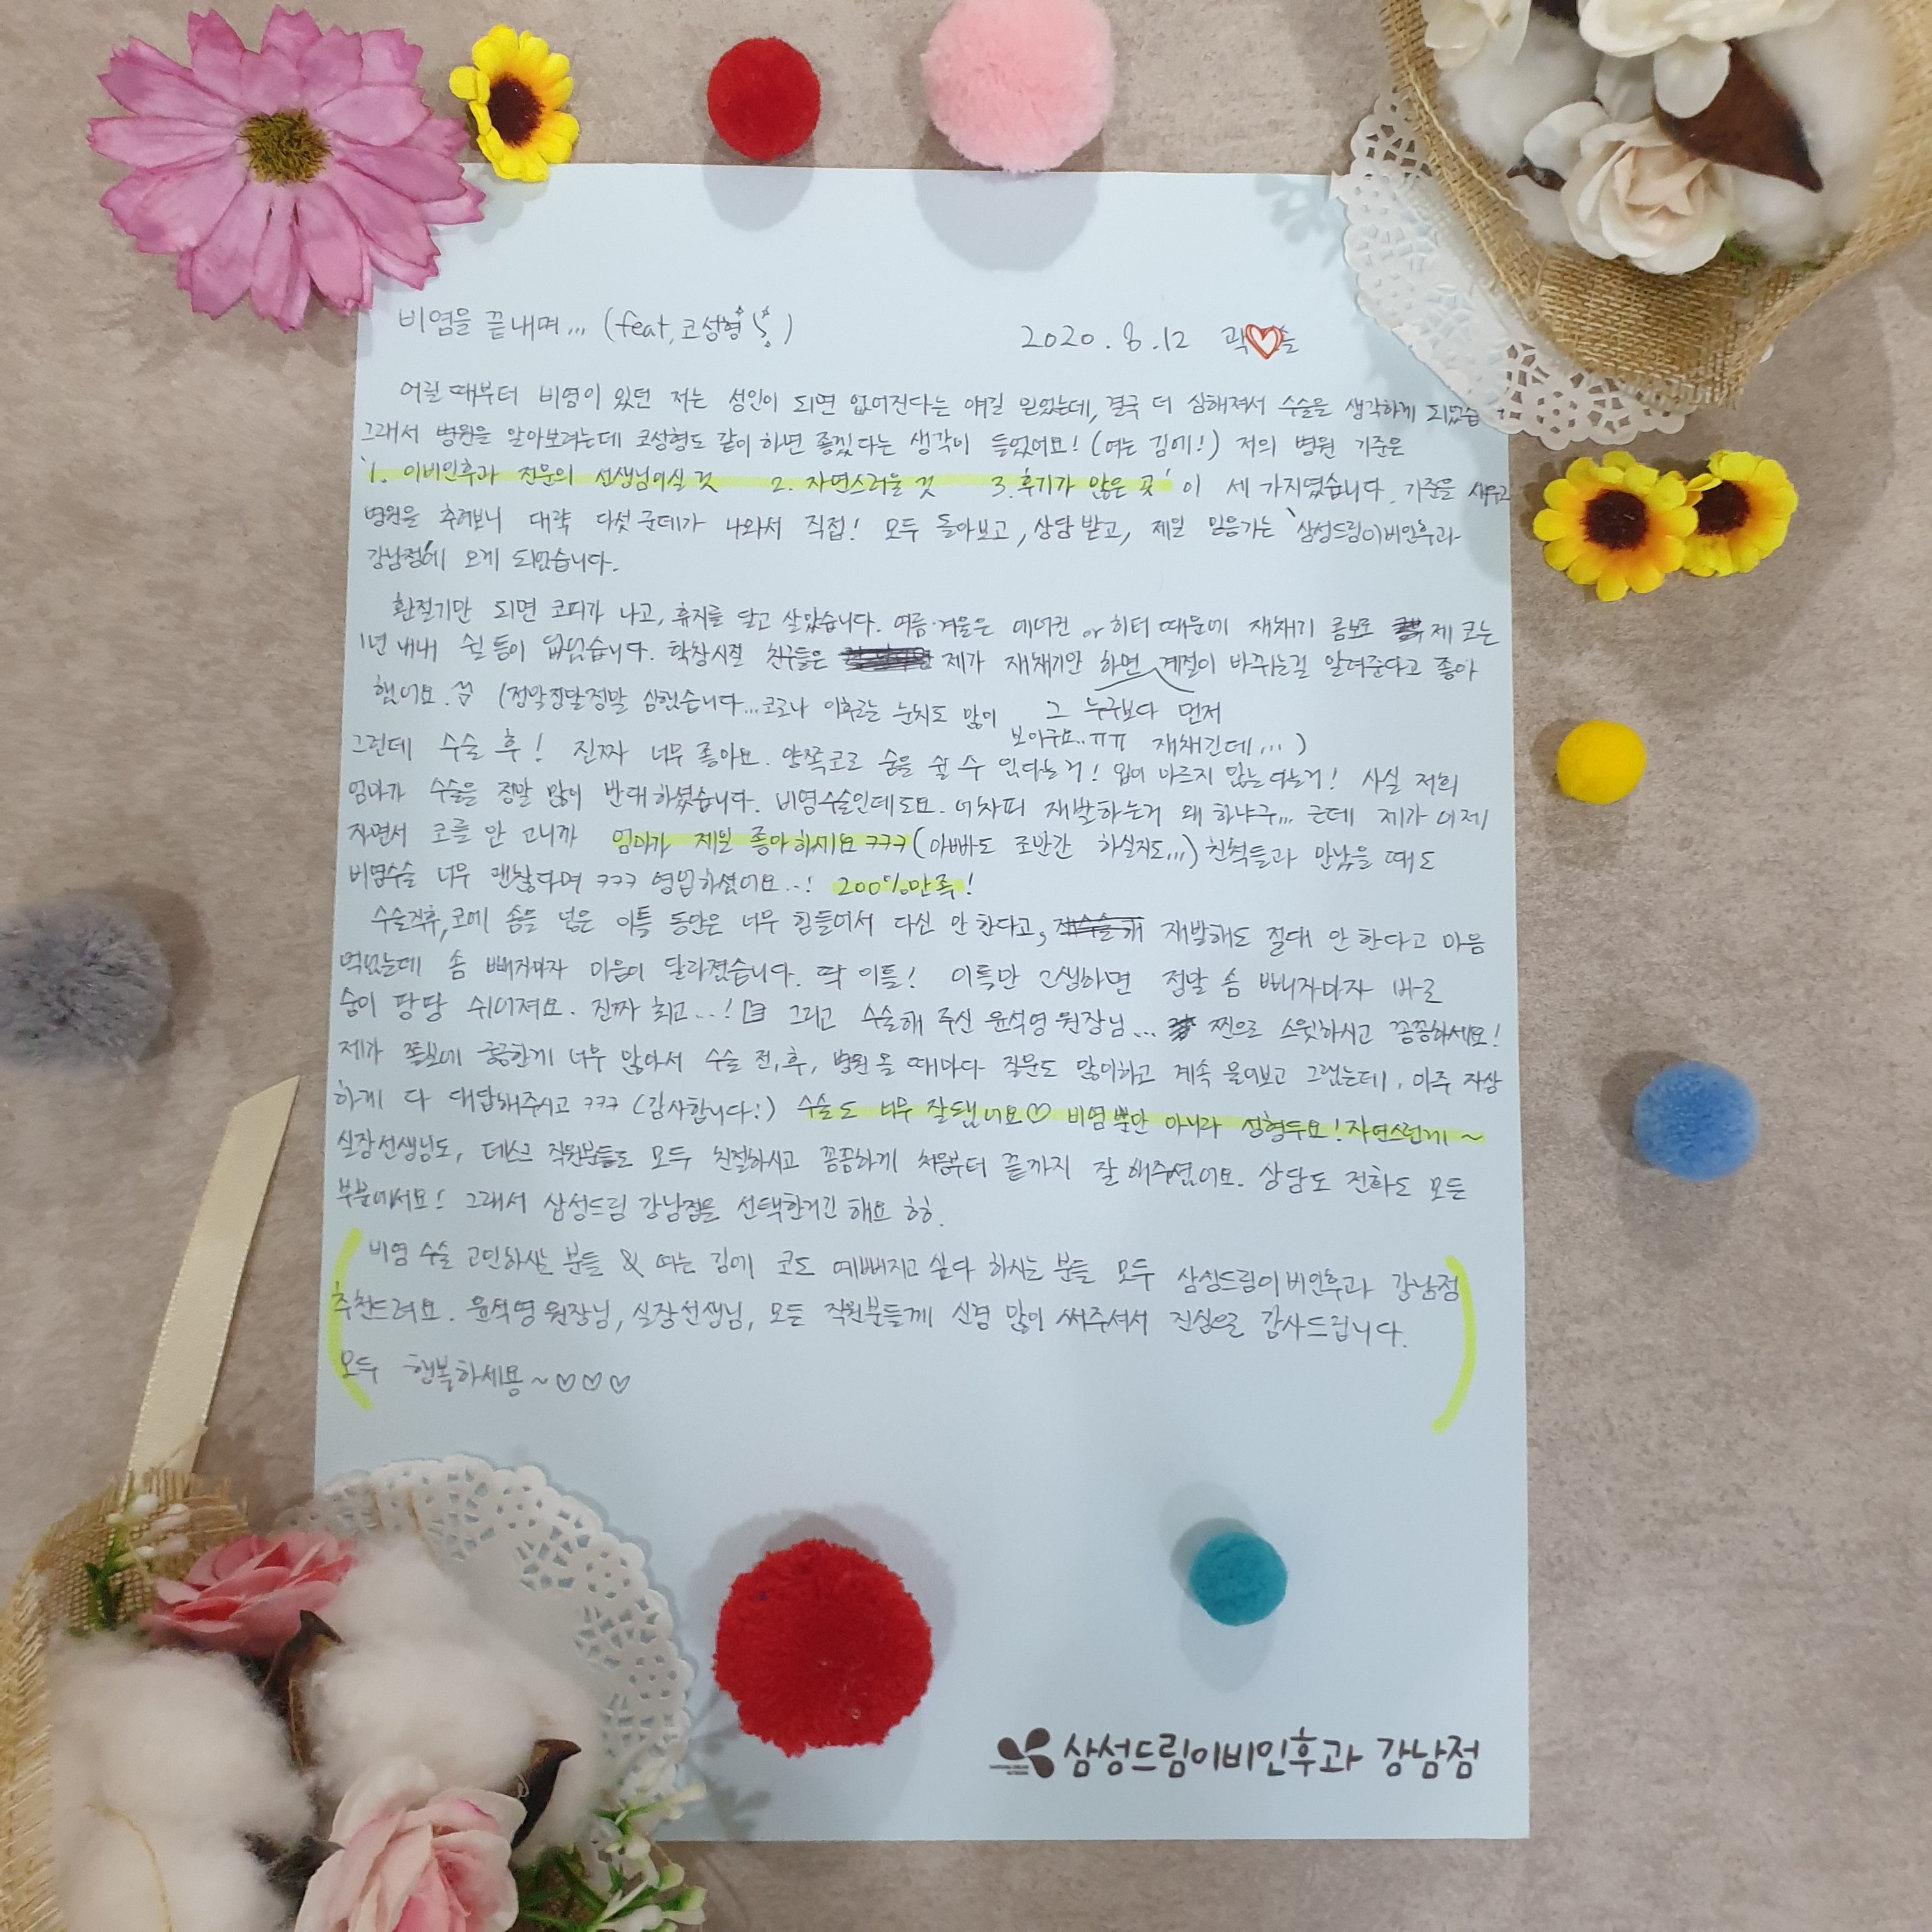 비염을 끝내며... (feat, 코성형)
2020. 8. 12 곽♡슬
어릴 때부터 비염이 있던 저는 성인이 되면 없어진다는 얘길 믿었는데, 결국 더 심해져서 수술을 생각하게 되었습
그래서 병원을 알아보려는데 코성형도 같이 하면 좋겠다는 생각이 들었어요! (여는 김에!) 저의 병원 기준은
'1. 이비인후과 전문의 선생님이실 것 2. 자연스러울 것 3. 후기가 많은 곳' 이 세 가지였습니다. 기준을 세우고
병원을 추려보니 대략 다섯 군데가 나와서 직접! 모두 돌아보고, 상담 받고, 제일 믿음가는 '삼성드림이비인후과
강남점'에 오게 되었습니다.
환절기만 되면 코피가 나고, 휴지를 달고 살았습니다. 여름·겨울은 에어컨 or 히터 때문에 재채기 콤보로 제 코는
1년 내내 쉴 틈이 없었습니다. 학창시절 친구들은 제가 재채기만 하면 계절이 바뀌는걸 알려준다고 좋아
했어요. (정말정말정말 심했습니다...코로나 이후로는 눈치도 많이
그 누구보다 먼저
보이구요..ㅠㅠ 재채긴데...)
그런데 수술 후! 진짜 너무 좋아요. 양쪽코로 숨을 쉴 수 있다는거! 입이 마르지 않는다는거! 사실 저희
엄마가 수술을 정말 많이 반대하셨습니다. 비염수술인데도요. 어차피 재발하는거 왜 하냐구... 근데 제가 이제
자면서 코를 안 고니까 엄마가 제일 좋아하세요ㅋㅋㅋ (아빠도 조만간 하실지도...) 친척들과 만났을 때도
비염수술 너무 괜찮다며 ㅋㅋㅋ 영업하셨어요..! 200%만족!
수술직후, 코에 솜을 넣은 이틀 동안은 너무 힘들어서 다신 안 한다고, 재발해도 절대 안 한다고 마음
먹었는데 솜 빼자마자 마음이 달라졌습니다. 딱 이틀! 이틀만 고생하면 정말 솜 빼자마자 바로
숨이 팡팡 쉬어져요. 진짜 최고..! 그리고 수술해 주신 윤석영 원장님... 찐으로 스윗하시고 꼼꼼하세요!
제가 쫄보에 궁금한게 너무 많아서 수술 전, 후, 병원 올 때마다 질문도 많이하고 계속 물어보고 그랬는데, 아주 자상
하게 다 대답해주시고 ㅋㅋㅋ (감사합니다!) 수술도 너무 잘됐어요♡ 비염뿐만 아니라 성형두요! 자연스럽게 ~
실장선생님도, 데스크 직원분들도 모두 친절하시고 꼼꼼하게 처음부터 끝까지 잘 해주셨어요. 상담도 전화도 모든
부분에서요! 그래서 삼성드림 강남점을 선택한거긴 해요 ㅎㅎ.
비염 수술 고민하시는 분들 & 여는 김에 코도 예뻐지고 싶다 하시는 분들 모두 삼성드림이비인후과 강남점
추천드려요. 윤석영 원장님, 실장선생님, 모든 직원분들께 신경 많이 써주셔서 진심으로 감사드립니다.
모두 행복하세용~♡♡♡
삼성드림이비인후과 강남점